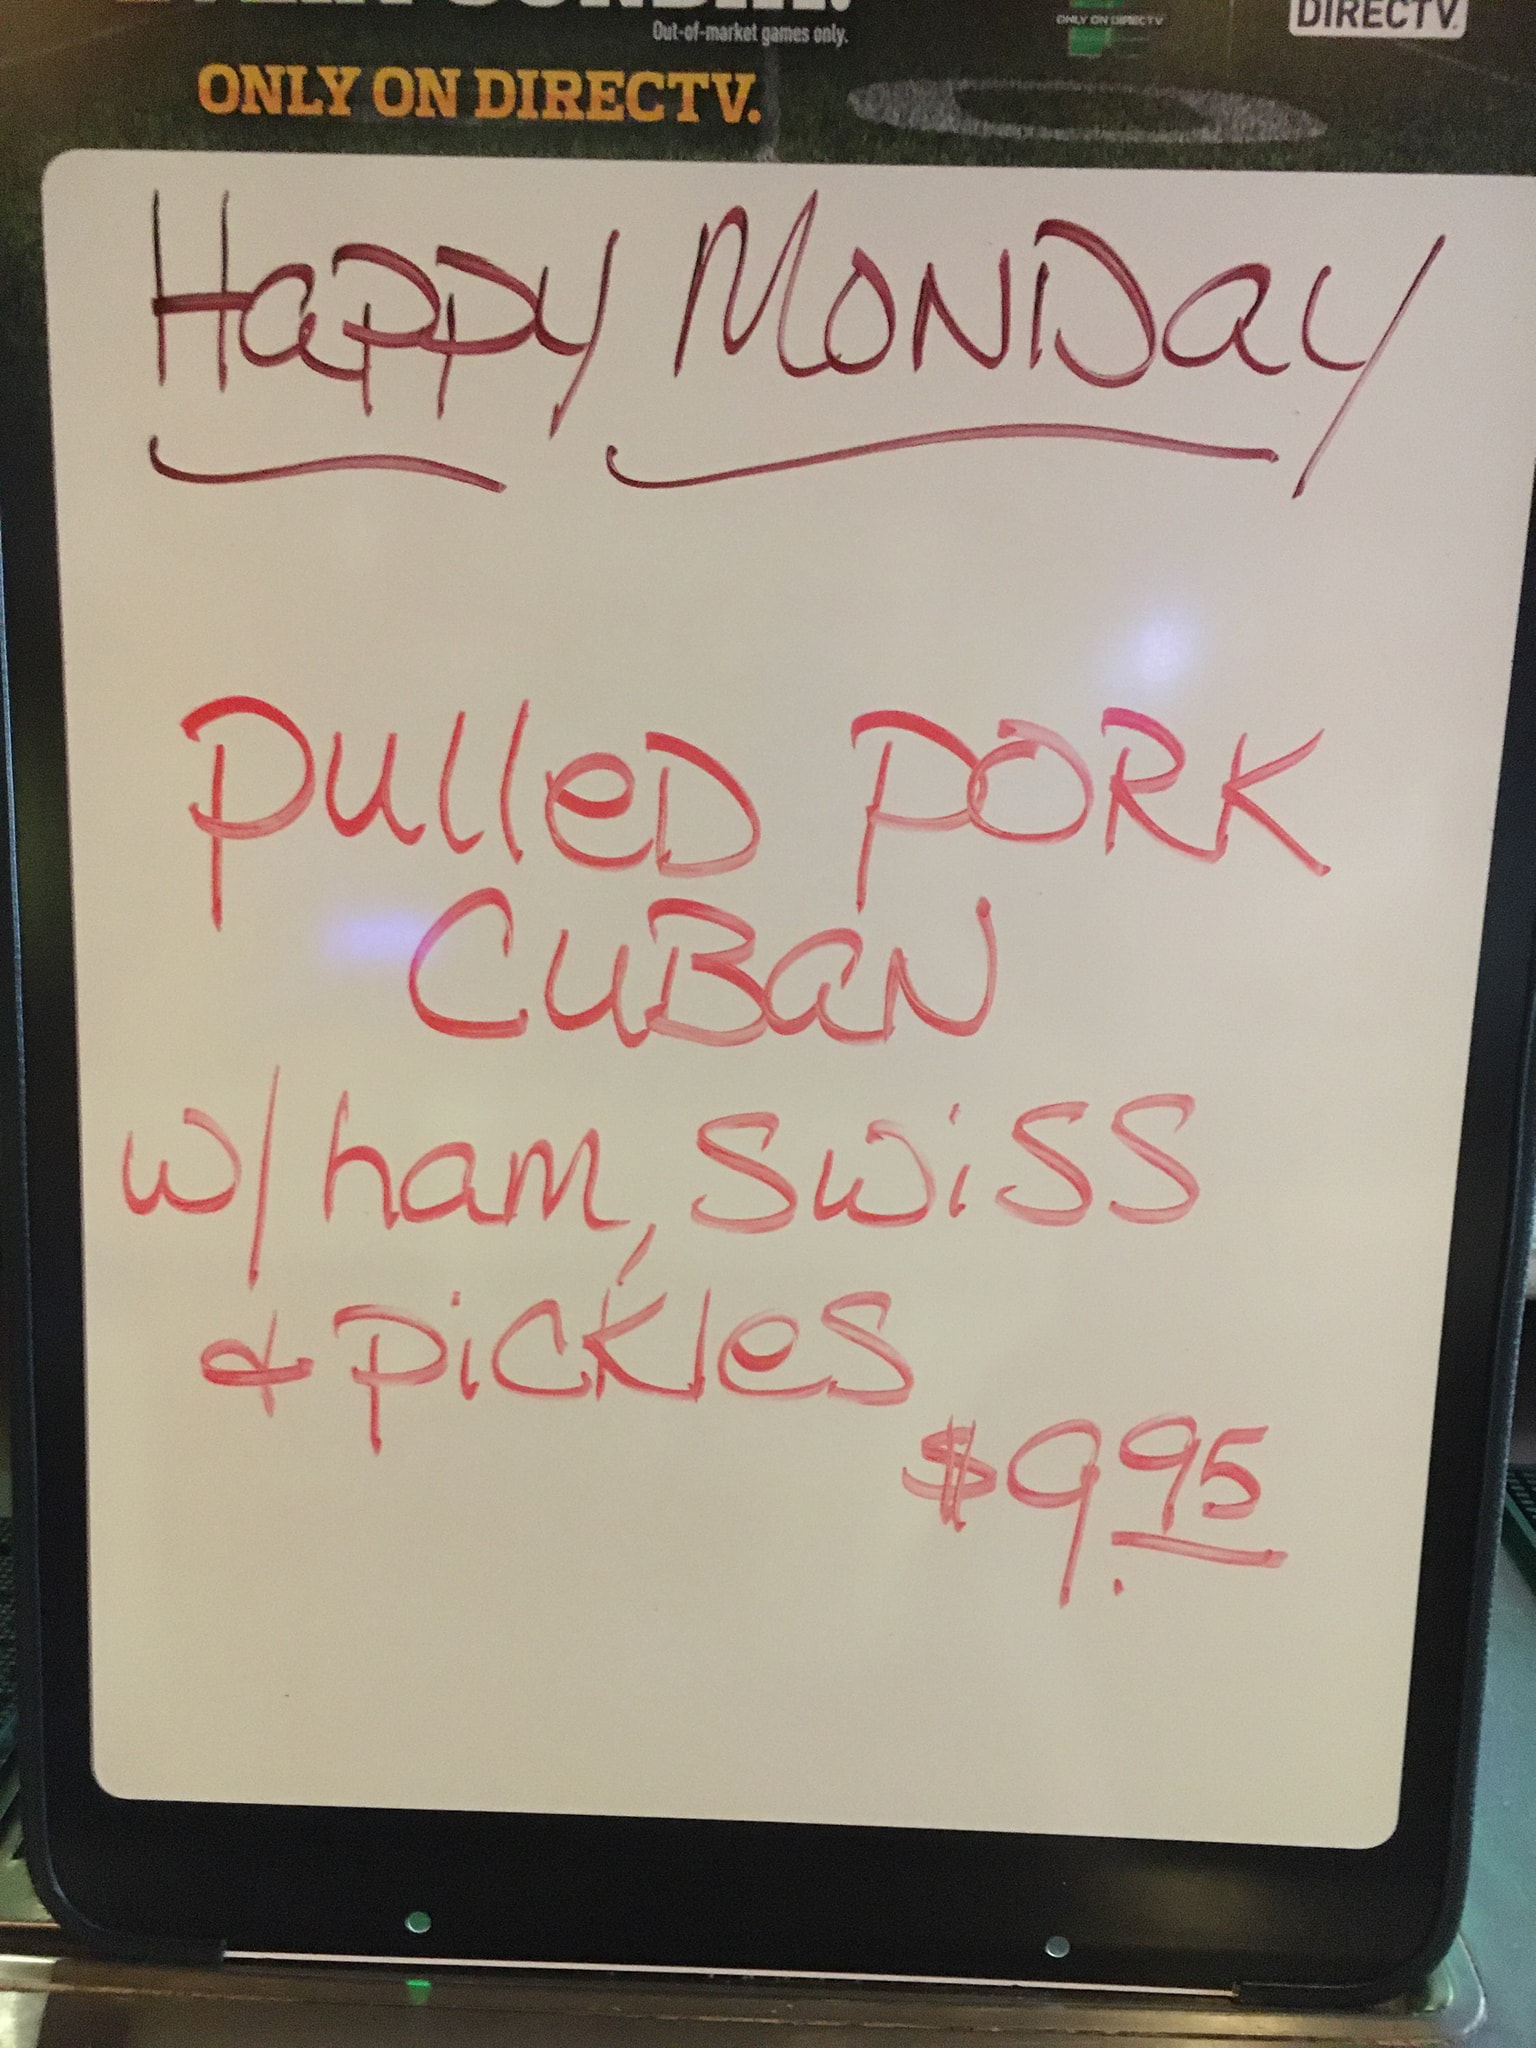 Out-of-market games only.
ONLY ON DIRECTV
DIRECTV
ONLY ON DIRECTV.
Happy Monday
Pulled Pork
Cuban
w/ ham, Swiss
& pickles
$9.95